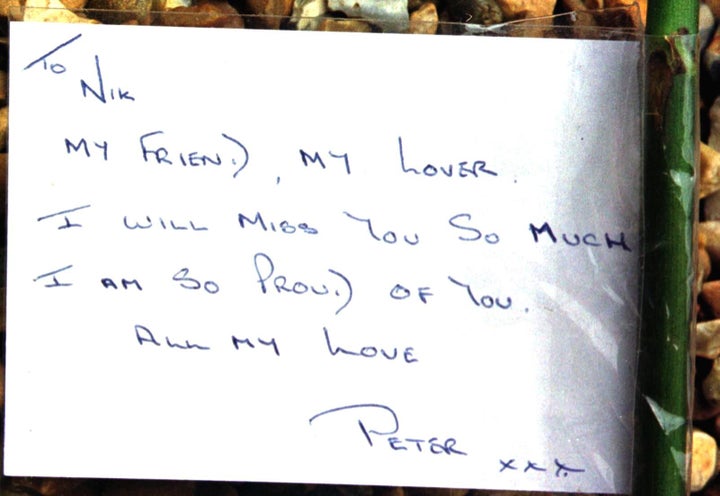 To Nik
My Friend, my Lover.
I will miss you so much
I am so Proud of you.
All my Love
Peter xxx.